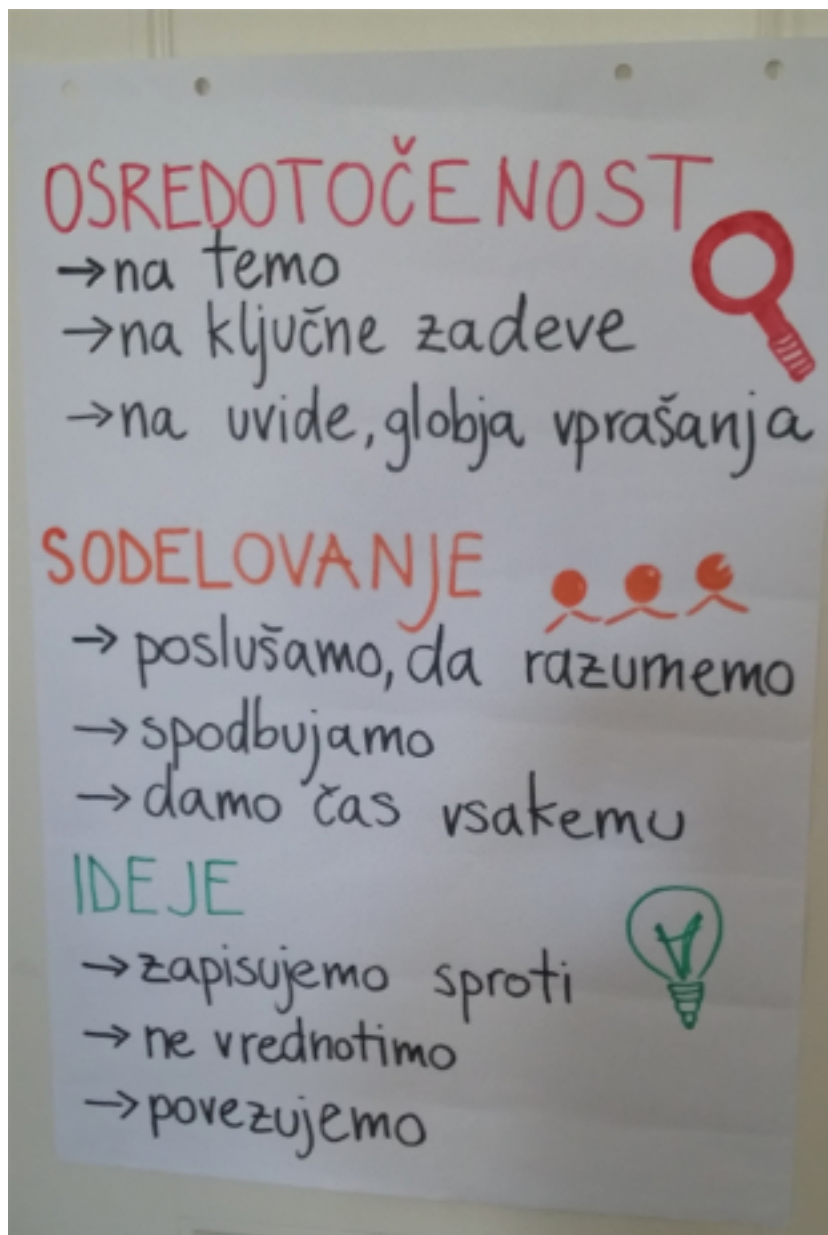 OSREDOTOČENOST
→na temo
→na ključne zadeve
→na uvide, globja vprašanja
SODELOVANJE
→ poslušamo, da razumemo
→ spodbujamo
→ damo čas vsakemu
IDEJE
→ zapisujemo sproti
→ ne vrednotimo
→ povezujemo